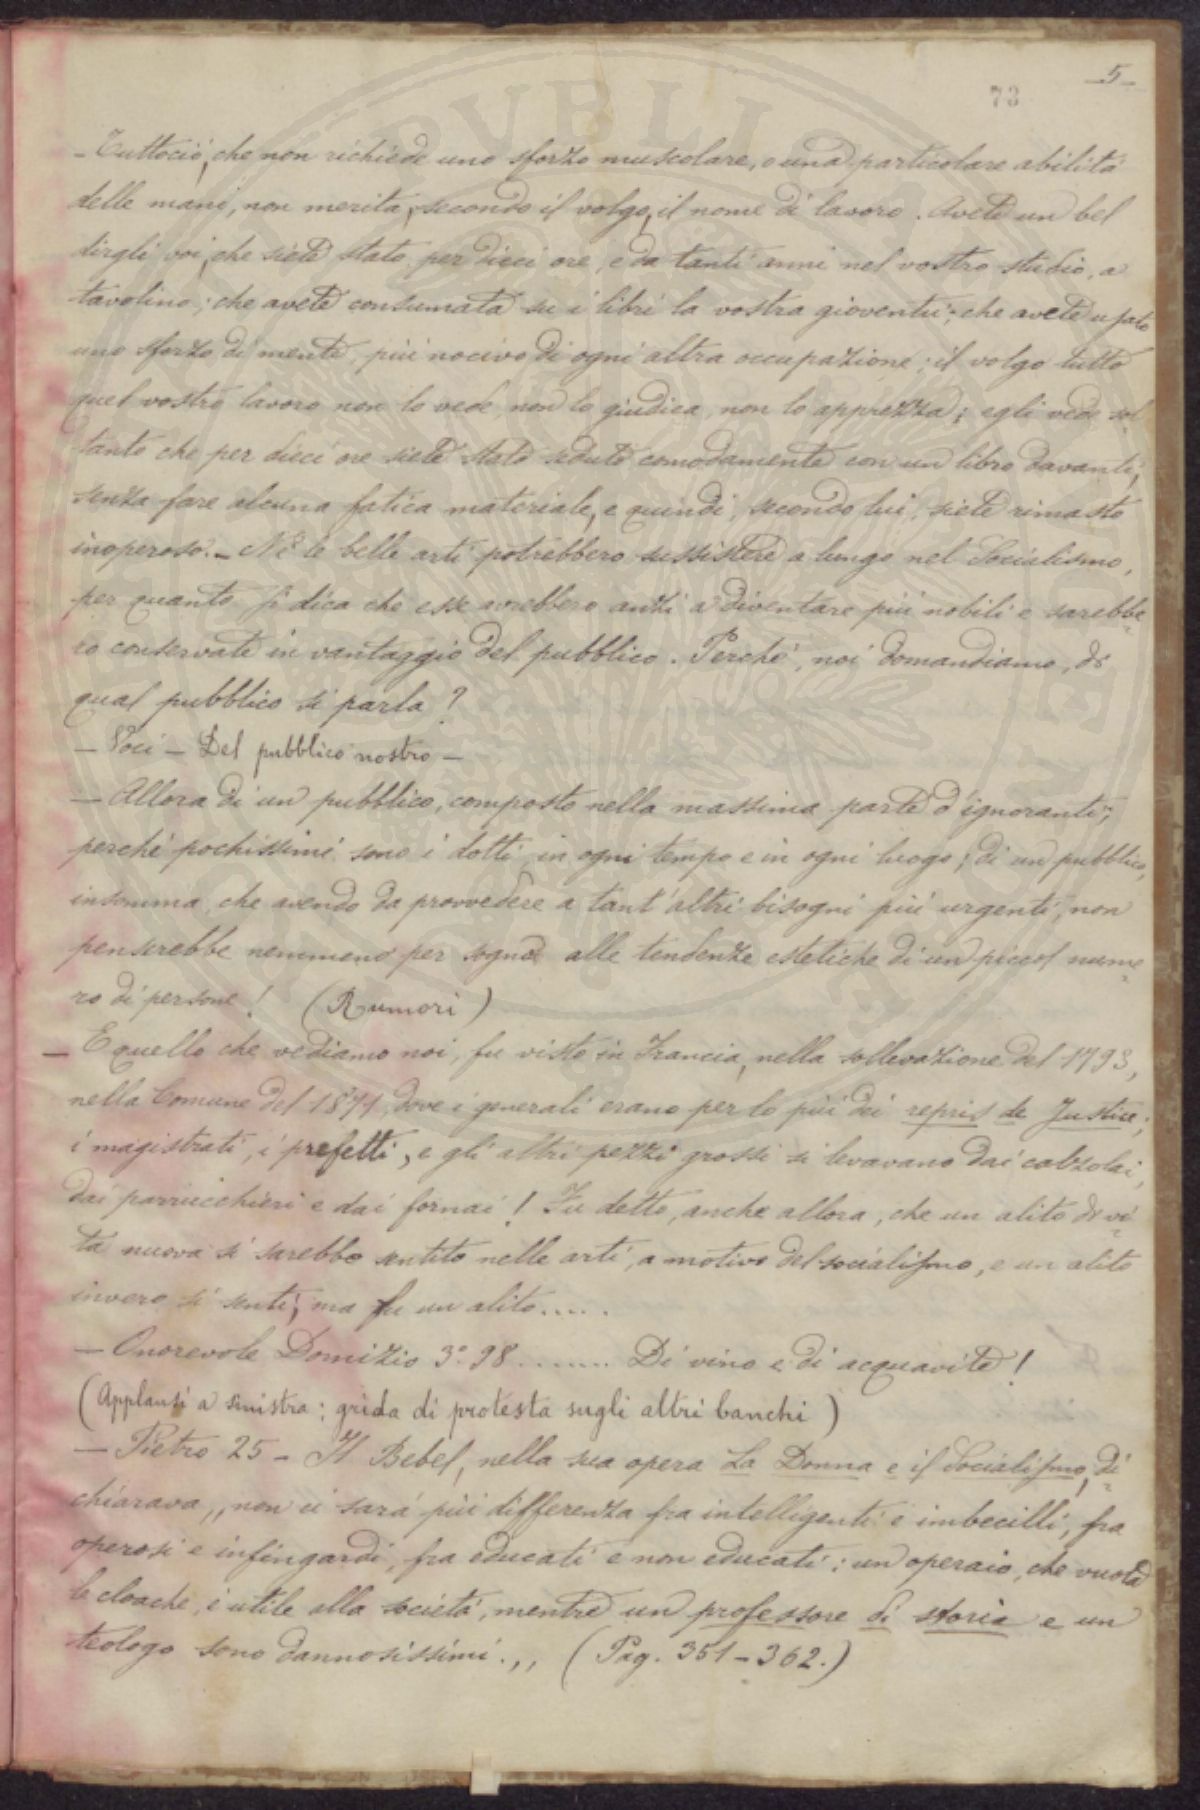 5
73
- Tuttociò, che non richiede uno sforzo muscolare, o una particolare abilità
delle mani, non merita, secondo il volgo, il nome di lavoro. Avete un bel
dirgli voi, che siete stato per dieci ore, e da tanti anni nel vostro studio, a
tavolino; che avete consumata su i libri la vostra gioventù; che avete usato
uno sforzo di mente, più nocivo di ogni altra occupazione; il volgo tutto
quel vostro lavoro non lo vede, non lo giudica, non lo apprezza; egli vede sol
tanto che per dieci ore siete stato seduto comodamente con un libro davanti,
senza fare alcuna fatica materiale, e quindi, secondo lui, siete rimasto
inoperoso. - Nè le belle arti potrebbero sussistere a lungo nel Socialismo,
per quanto si dica che esse avrebbero anzi a diventare più nobili e sarebbe-
ro conservate in vantaggio del pubblico. Perchè, noi domandiamo, di
qual pubblico si parla?
- Voci - Del pubblico nostro -
- Allora di un pubblico, composto nella massima parte d'ignoranti,
perchè pochissimi sono i dotti in ogni tempo e in ogni luogo; di un pubblico,
insomma, che avendo da provvedere a tant'altri bisogni più urgenti, non
penserebbe nemmeno per sogno alle tendenze estetiche di un piccol nume-
ro di persone! (Rumori)
- E quello che vediamo noi, fu visto in Francia, nella sollevazione del 1793,
nella Comune del 1871, dove i generali erano per lo più dei repris de Justice;
i magistrati, i prefetti, e gli altri pezzi grossi si levavano dai calzolai,
dai parrucchieri e dai fornai! Fu detto, anche allora, che un alito di vi-
ta nuova si sarebbe sentito nelle arti, a motivo del socialismo, e un alito
invero si sentì, ma fu un alito.....
- Onorevole Domizio 3º. 98 ....... Di vino e di acquavite!
(Applausi a sinistra; grida di protesta sugli altri banchi)
- Pietro 25 - Il Bebel, nella sua opera La Donna e il Socialismo, di-
chiarava „non ci sarà più differenza fra intelligenti e imbecilli, fra
operosi e infingardi, fra educati e non educati; un operaio, che vuota
le cloache, è utile alla società, mentre un professore di storia e un
teologo sono dannosissimi.„ (Pag. 351-362.)